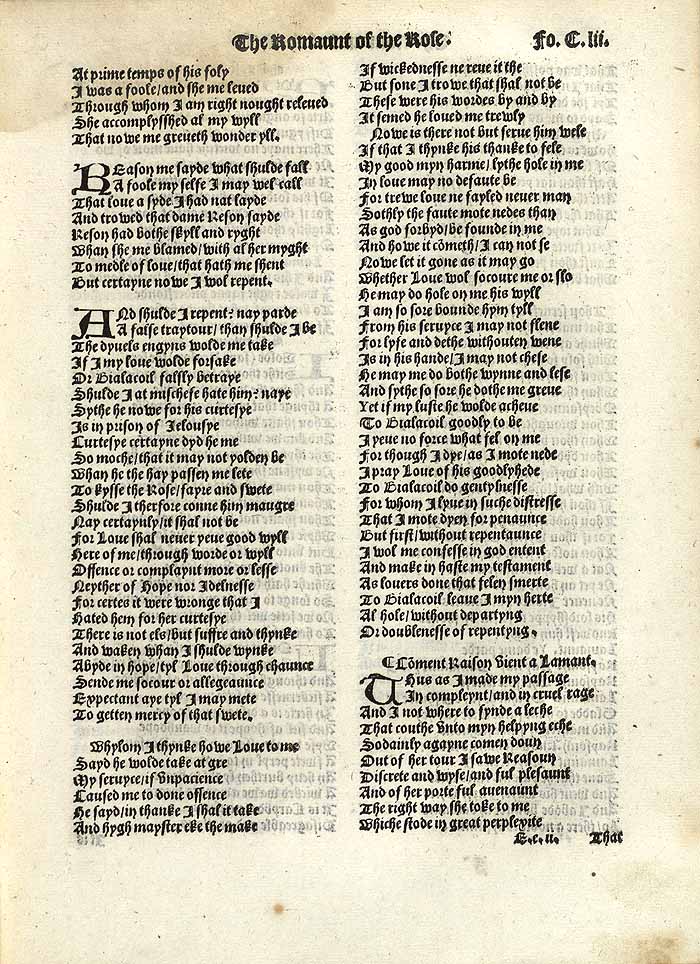 The Romaunt of the Rose.
Fo. C. lii.
At prime temps of his foly
I was a foole/and she me leued
Through whom I am right nought releued
She accomplysshed al my wyll
That nowe me greueth wonder yll.
REason me sayde what shulde fall
A foole my selfe I may wel call
That loue a syde I had nat layde
And trowed that dame Reson sayde
Reson had bothe skyll and ryght
Whan she me blamed/with al her myght
To medle of loue/that hath me shent
But certayne nowe I wol repent.
ANd shulde I repent: nay parde
A false traytour/than shulde I be
The dyuels engyns wolde me take
If I my loue wolde forsake
Or Bialacoil falsly betraye
Shulde I at mischefe hate him: naye
Sythe he nowe for his curtesye
Is in prison of Jelousye
Curtesye certayne dyd he me
So moche/that it may not yolden be
Whan he the hay passen me lete
To kysse the Rose/fayre and swete
Shulde I therfore conne him maugre
Nay certaynly/it shal not be
For Loue shal neuer yeue good wyll
Here of me/through worde or wyll
Offence or complaynt more or lesse
Neyther of Hope nor Idelnesse
For certes it were wronge that I
Hated hem for her curtesye
There is not els/but suffre and thynke
And waken whan I shulde wynke
Abyde in hope/tyl Loue through chaunce
Sende me socour or allegeaunce
Expectant aye tyl I may mete
To getten mercy of that swete.
Whylom I thynke howe Loue to me
Sayd he wolde take at gre
My seruyce/if vnpacience
Caused me to done offence
He sayd/in thanke I shal it take
And hygh mayster eke the make
If wickednesse ne reue it the
But sone I trowe that shal not be
These were his wordes by and by
It semed he loued me trewly
Nowe is there not but serue him wele
If that I thynke his thanke to fele
My good myn harme/lythe hole in me
In loue may no defaute be
For trewe loue ne fayled neuer man
Sothly the faute mote nedes than
As god forbyd/be founde in me
And howe it cōmeth/I can not se
Nowe let it gone as it may go
Whether Loue wol socoure me or slo
He may do hole on me his wyll
I am so sore bounde hym tyll
From his seruyce I may not flene
For lyfe and dethe withouten wene
Is in his hande/I may not chese
He may me do bothe wynne and lese
And sythe so sore he dothe me greue
Yet if my luste he wolde acheue
To Bialacoil goodly to be
I yeue no force what fel on me
For though I dye/as I mote nede
I pray Loue of his goodlyhede
To Bialacoil do gentylnesse
For whom I lyue in suche distresse
That I mote dyen for penaunce
But first/without repentaunce
I wol me confesse in god entent
And make in haste my testament
As louers done that felen smerte
To Bialacoil leaue I myn herte
Al hole/without departyng
Or doublenesse of repentyng.
¶ Cōment Raison vient a Lamant.
THus as I made my passage
In compleynt/and in cruel rage
And I not where to fynde a leche
That couthe vnto myn helpyng eche
Sodainly agayne comen doun
Out of her tour I sawe Reasoun
Discrete and wyse/and ful plesaunt
And of her porte ful auenaunt
The right way she toke to me
Whiche stode in great perplexite
E.e.ii.
That